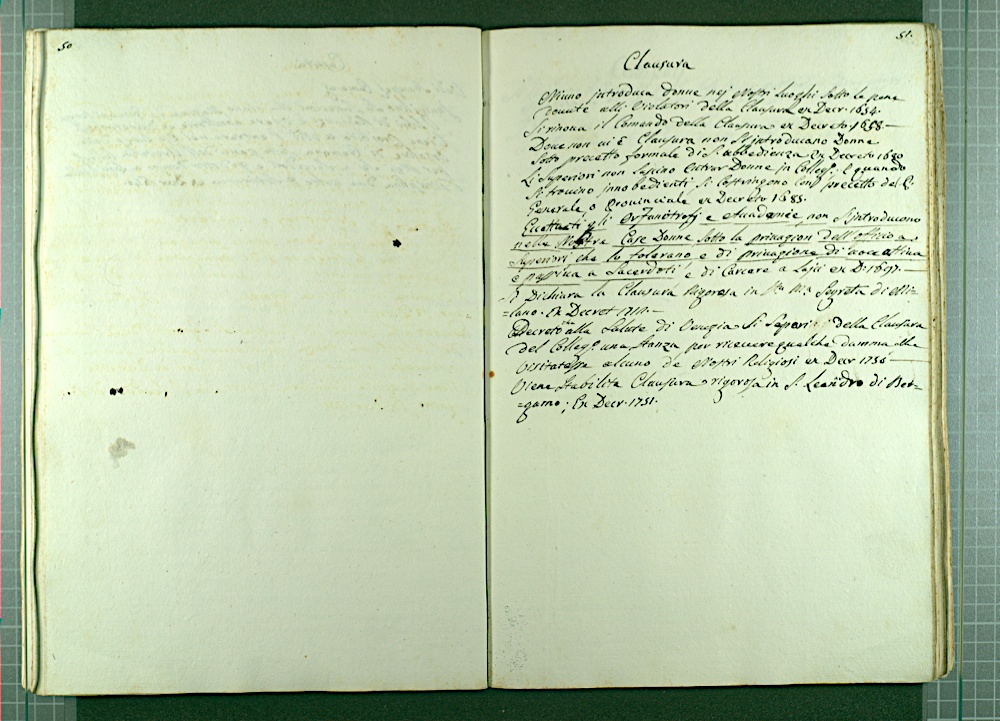 50
51.
Clausura
Niuno introduca Donne nej Nostri Luoghi sotto le pene
douute alli Violatori della Clausura ex Decr. 1654.
Si rinoua il Comando della Clausura ex Decreto 1668.
Doue non ui è Clausura non S'introducano Donne
sotto precetto formale di S. obbedienza ex Decreto 1680
Li Superiori non lascino entrar Donne in Colleg.° e quando
si trouino innobedienti si costringono con precetto del P.
Generale, o Prouinciale ex Decreto 1685.
Eccettuati gli Orfanotrofj e Accademie, non s'introducono
nelle Nostre Case Donne sotto la priuazion dell'offizio a
Superiori che lo tolerano e di priuazione di uoce attiua
e passiua a Sacerdoti e di Carcere a Laici ex D. 1697.
Si Dichiara la Clausura Rigorosa in Segreta di Mi-
=lano. Ex Decret 1711.
Decreto alla Salute di Venezia Si Separi della Clausura
del Colleg.° una stanza per riceuere qualche Damma che
uisitasse alcuno de Nostri Religiosi ex Decr 1736
Viene stabilita Clausura rigorosa in S. Leandro di Ber-
=gamo; Ex Decr. 1751.